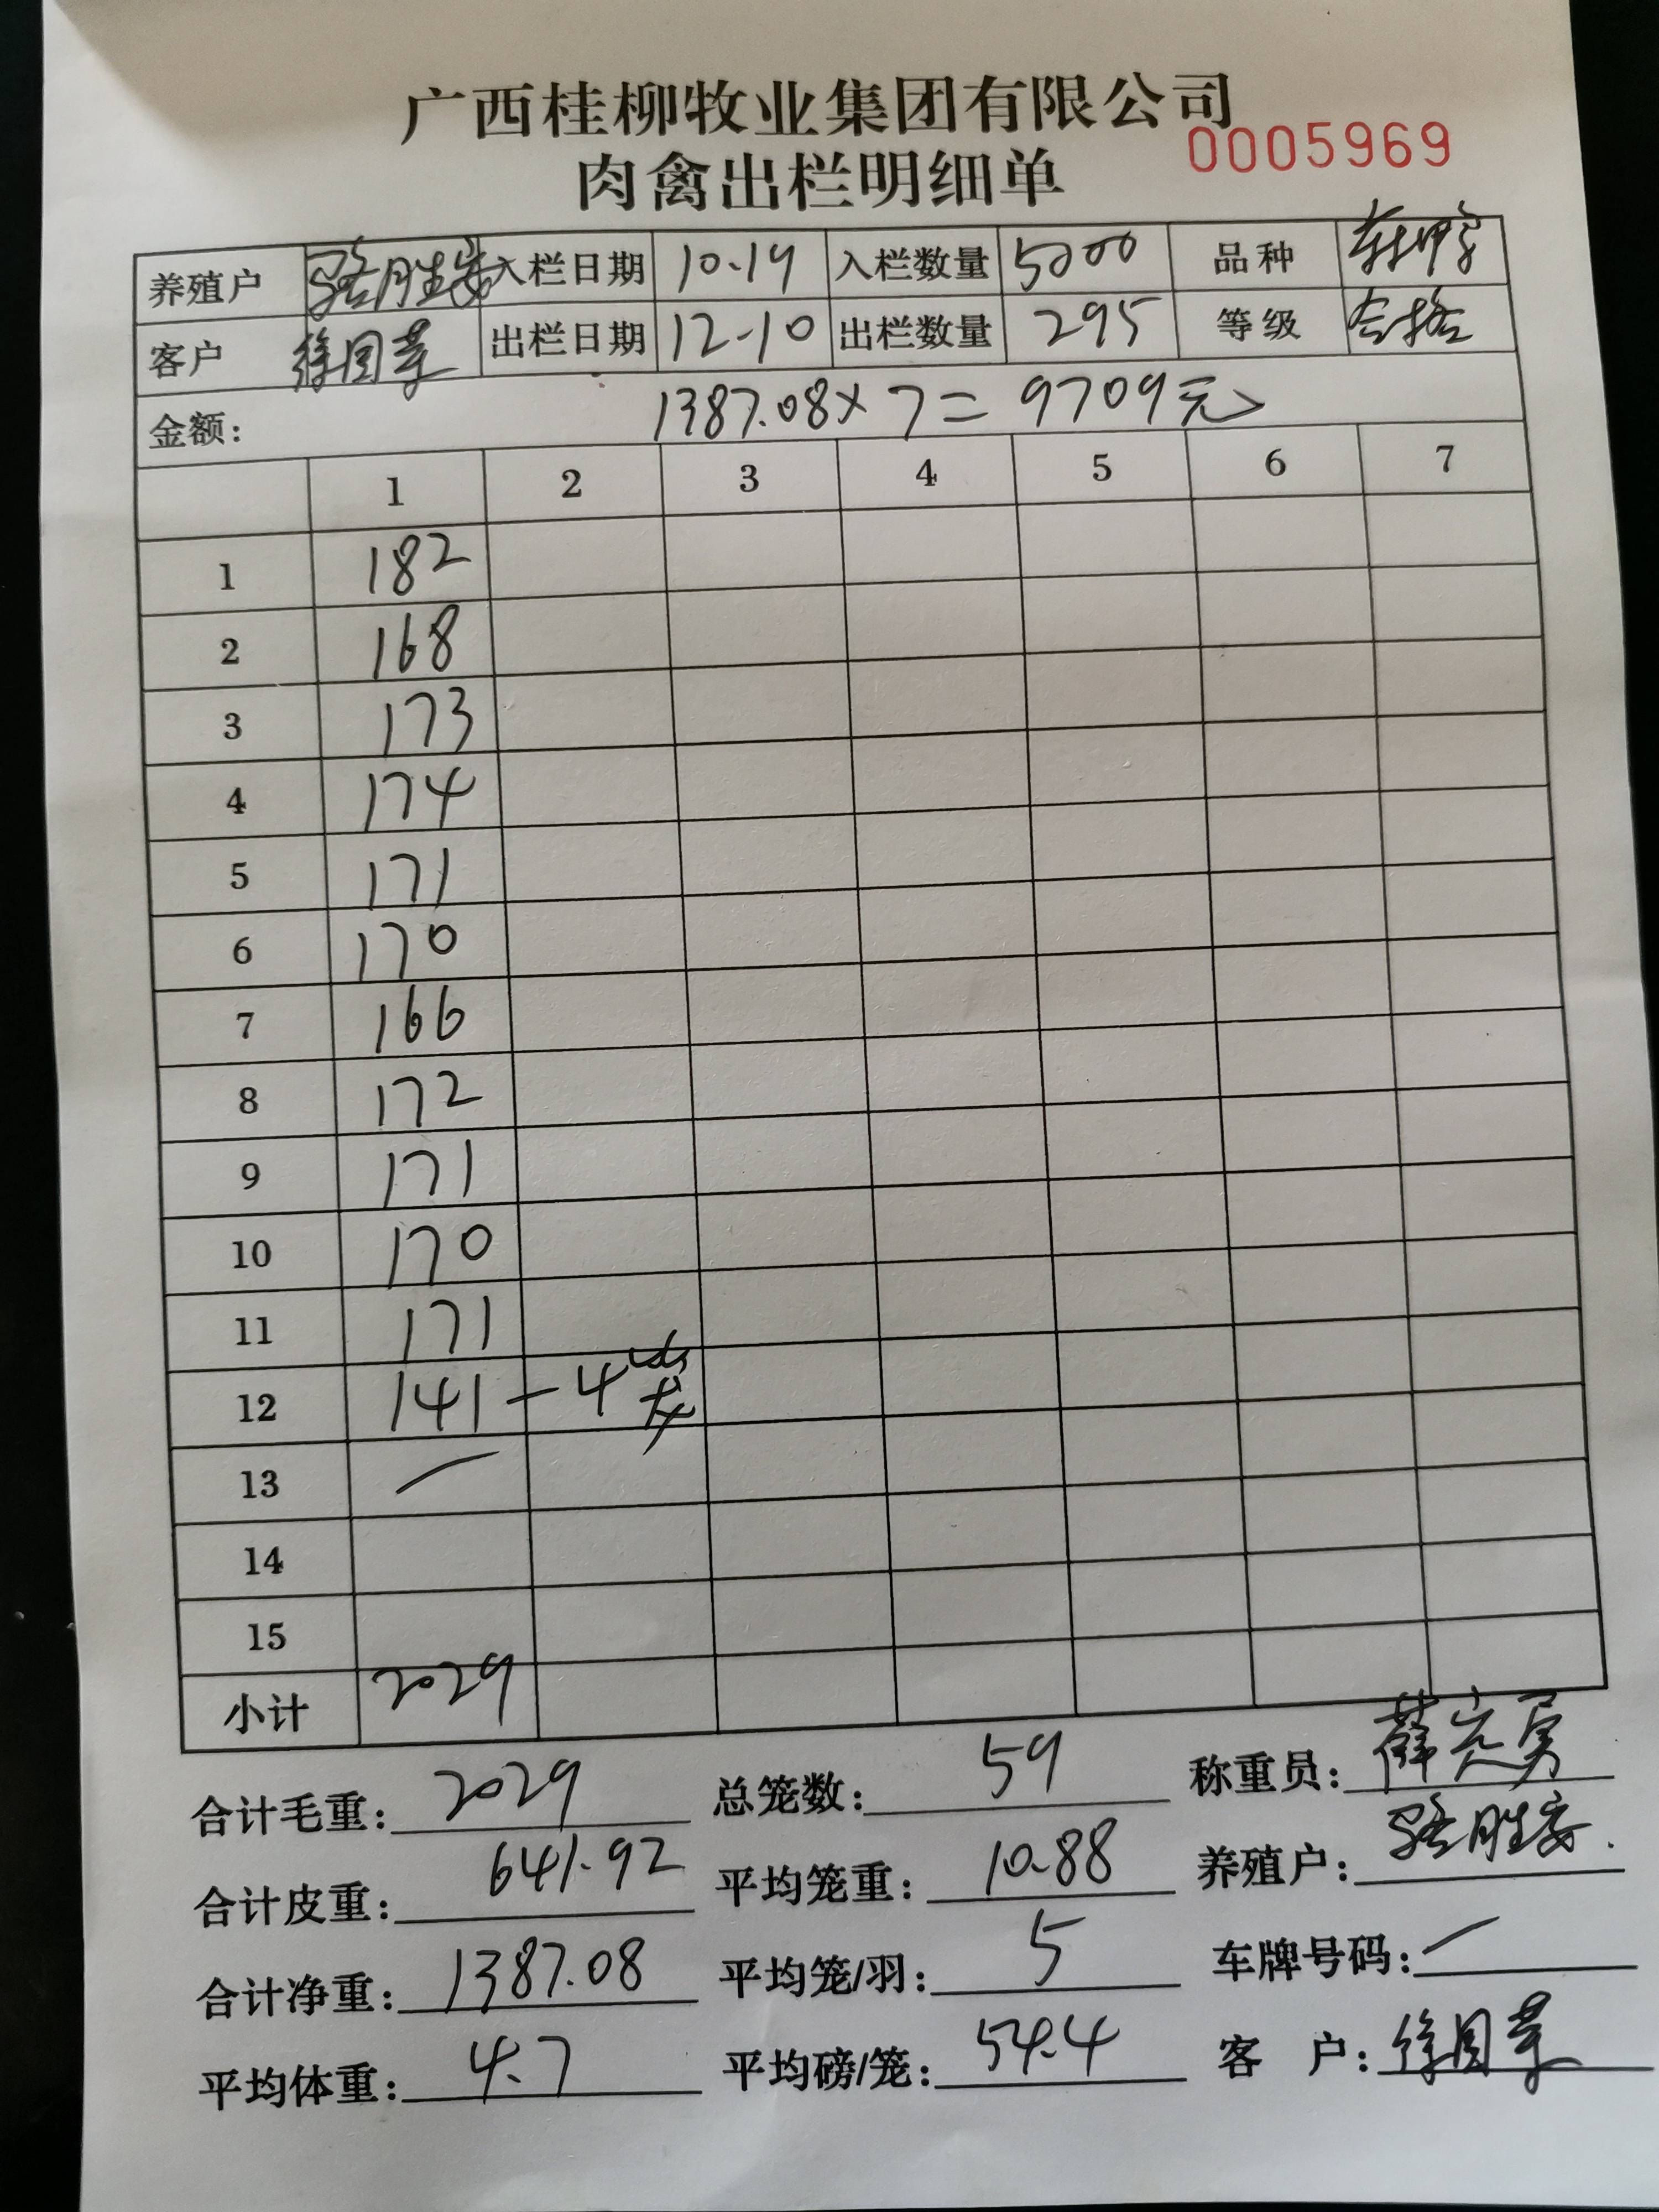 广西桂柳牧业集团有限公司
0005969
肉禽出栏明细单
养殖户 骆胜安 入栏日期 10.19 入栏数量 5200 品种
客户 徐国 出栏日期 12-10 出栏数量 295 等级 合格
金额: 1387.08×7=9709元
1 2 3 4 5 6 7
1 182
2 168
3 173
4 174
5 171
6 170
7 166
8 172
9 171
10 170
11 171
12 141-4笼
13 —
14
15
小计 2029
合计毛重: 2029 总笼数: 59 称重员: 薛 勇
合计皮重: 641.92 平均笼重: 10.88 养殖户: 骆胜安.
合计净重: 1387.08 平均笼/羽: 5 车牌号码: —
平均体重: 4.7 平均磅/笼: 54.4 客 户: 徐国